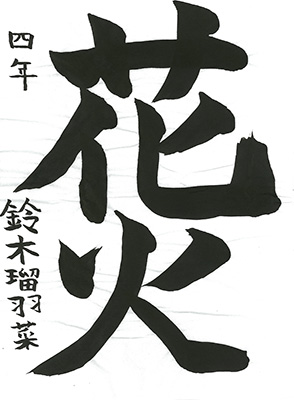 花火
四年
鈴木瑠羽菜